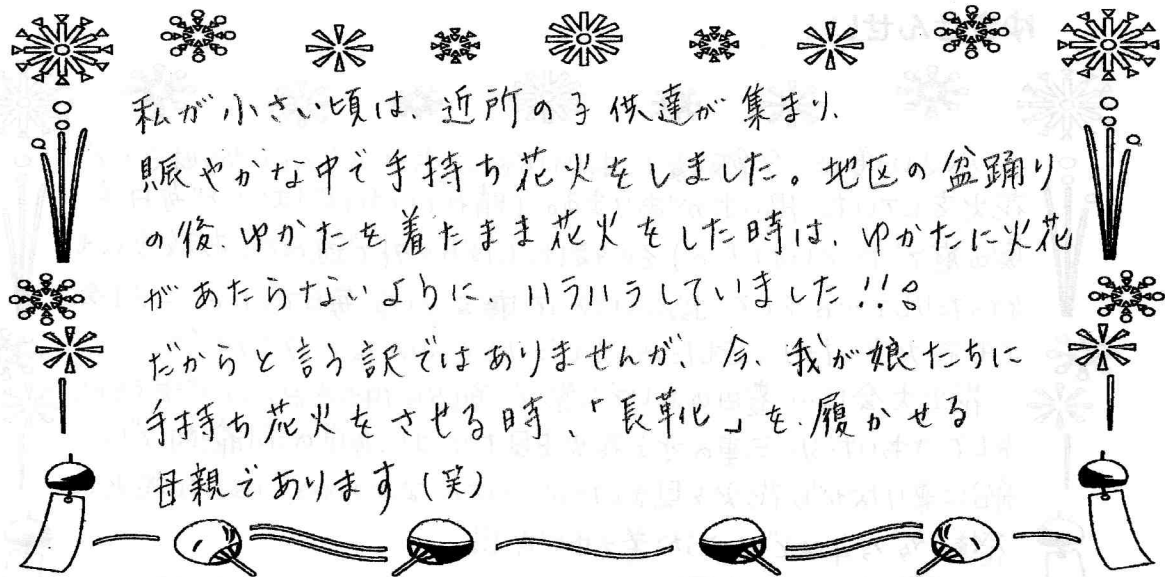 私が小さい頃は、近所の子供達が集まり、
賑やかな中で手持ち花火をしました。地区の盆踊り
の後、ゆかたを着たまま花火をした時は、ゆかたに火花
があたらないように、ハラハラしていました!!
だからと言う訳ではありませんが、今、我が娘たちに
手持ち花火をさせる時、「長革化」を、履かせる
母親であります(笑)